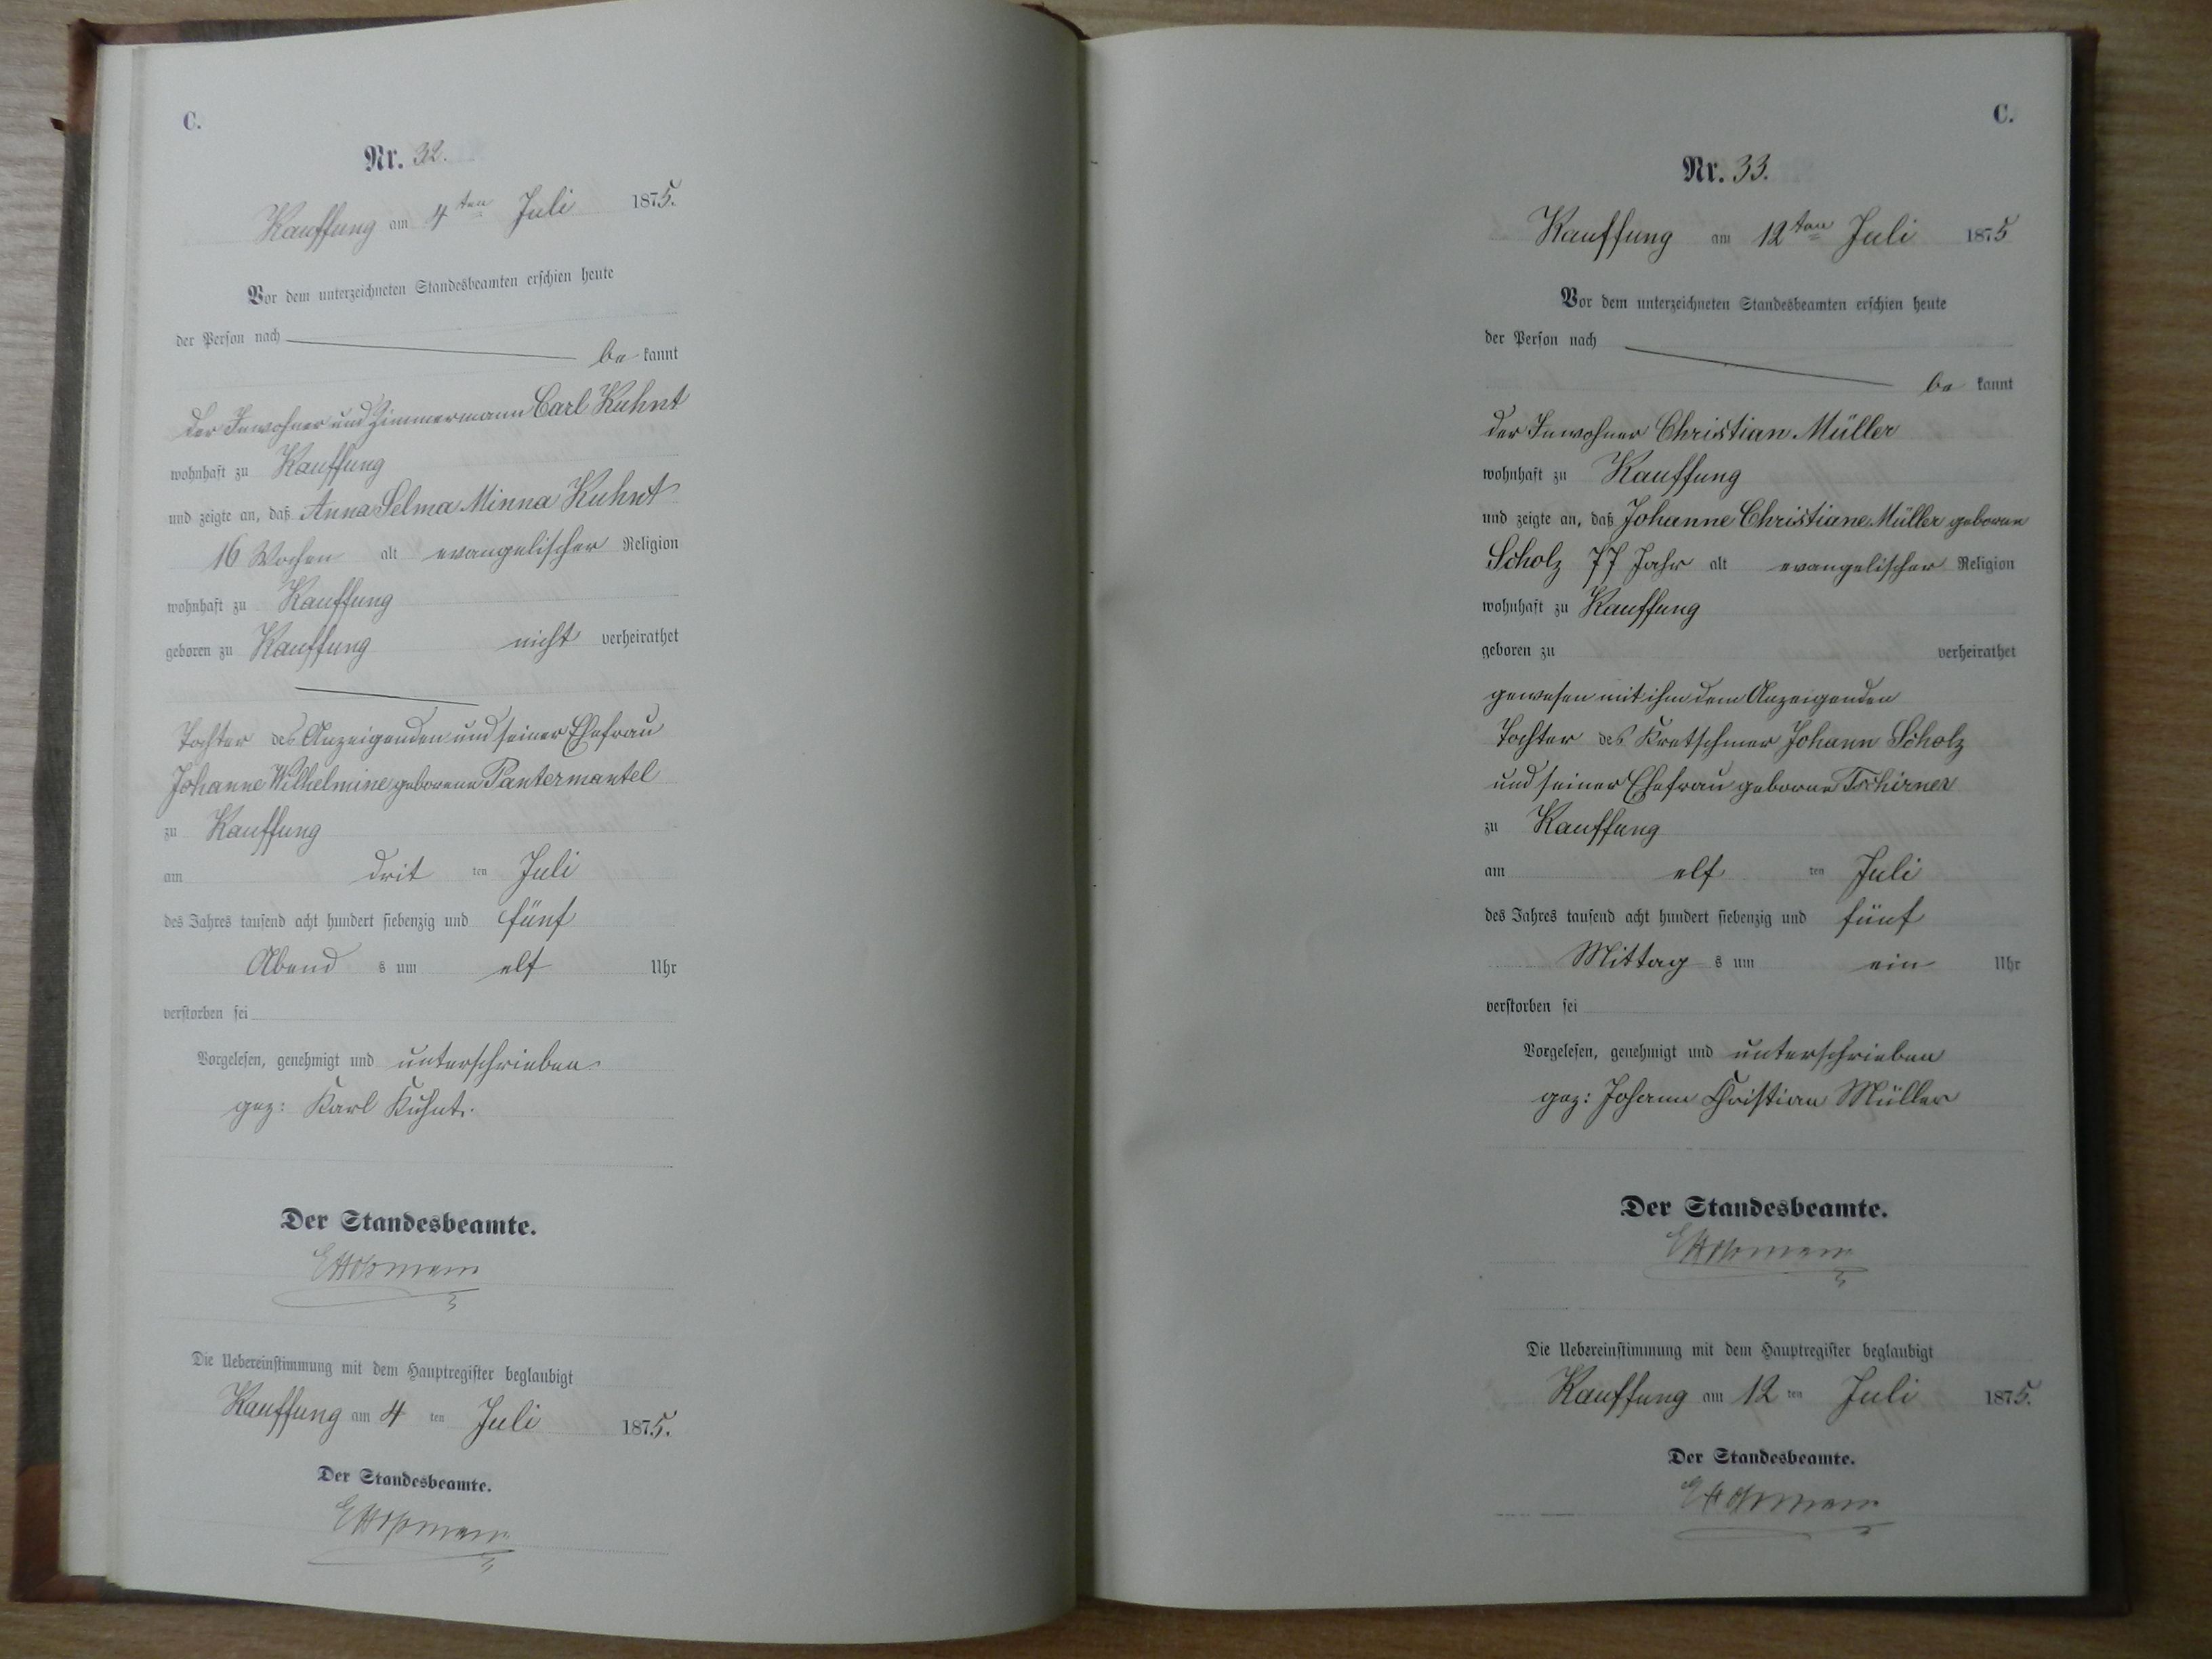 C.
Nr. 32.
Kauffung am 4ten Juli 1875.
Vor dem unterzeichneten Standesbeamten erschien heute
der Person nach
be kannt
der Inwohner und Zimmermann Carl Kuhnt
wohnhaft zu Kauffung
und zeigte an, daß Anna Selma Minna Kuhnt
16 Wochen alt evangelischer Religion
wohnhaft zu Kauffung
geboren zu Kauffung nicht verheirathet
Tochter des Anzeigenden und seiner Ehefrau
Johanne Wilhelmine geborene Pantermantel
zu Kauffung
am drit ten Juli
des Jahres tausend acht hundert siebenzig und fünf
Abend s um elf Uhr
verstorben sei
Vorgelesen, genehmigt und unterschrieben
gez: Karl Kuhnt.
Der Standesbeamte.
Die Uebereinstimmung mit dem Hauptregister beglaubigt
Kauffung am 4 ten Juli 1875.
Der Standesbeamte.
C.
Nr. 33.
Kauffung am 12ten Juli 1875
Vor dem unterzeichneten Standesbeamten erschien heute
der Person nach
be kannt
der Inwohner Christian Müller
wohnhaft zu Kauffung
und zeigte an, daß Johanne Christiane Müller geborne
Scholz 77 Jahr alt evangelischer Religion
wohnhaft zu Kauffung
geboren zu verheirathet
gewesen mit ihm dem Anzeigenden
Tochter des Kretschmer Johann Scholz
und seiner Ehefrau geborne Tschirner
zu Kauffung
am elf ten Juli
des Jahres tausend acht hundert siebenzig und fünf
Mittag s um ein Uhr
verstorben sei
Vorgelesen, genehmigt und unterschrieben
gez: Johann Christian Müller
Der Standesbeamte.
Die Uebereinstimmung mit dem Hauptregister beglaubigt
Kauffung am 12 ten Juli 1875.
Der Standesbeamte.